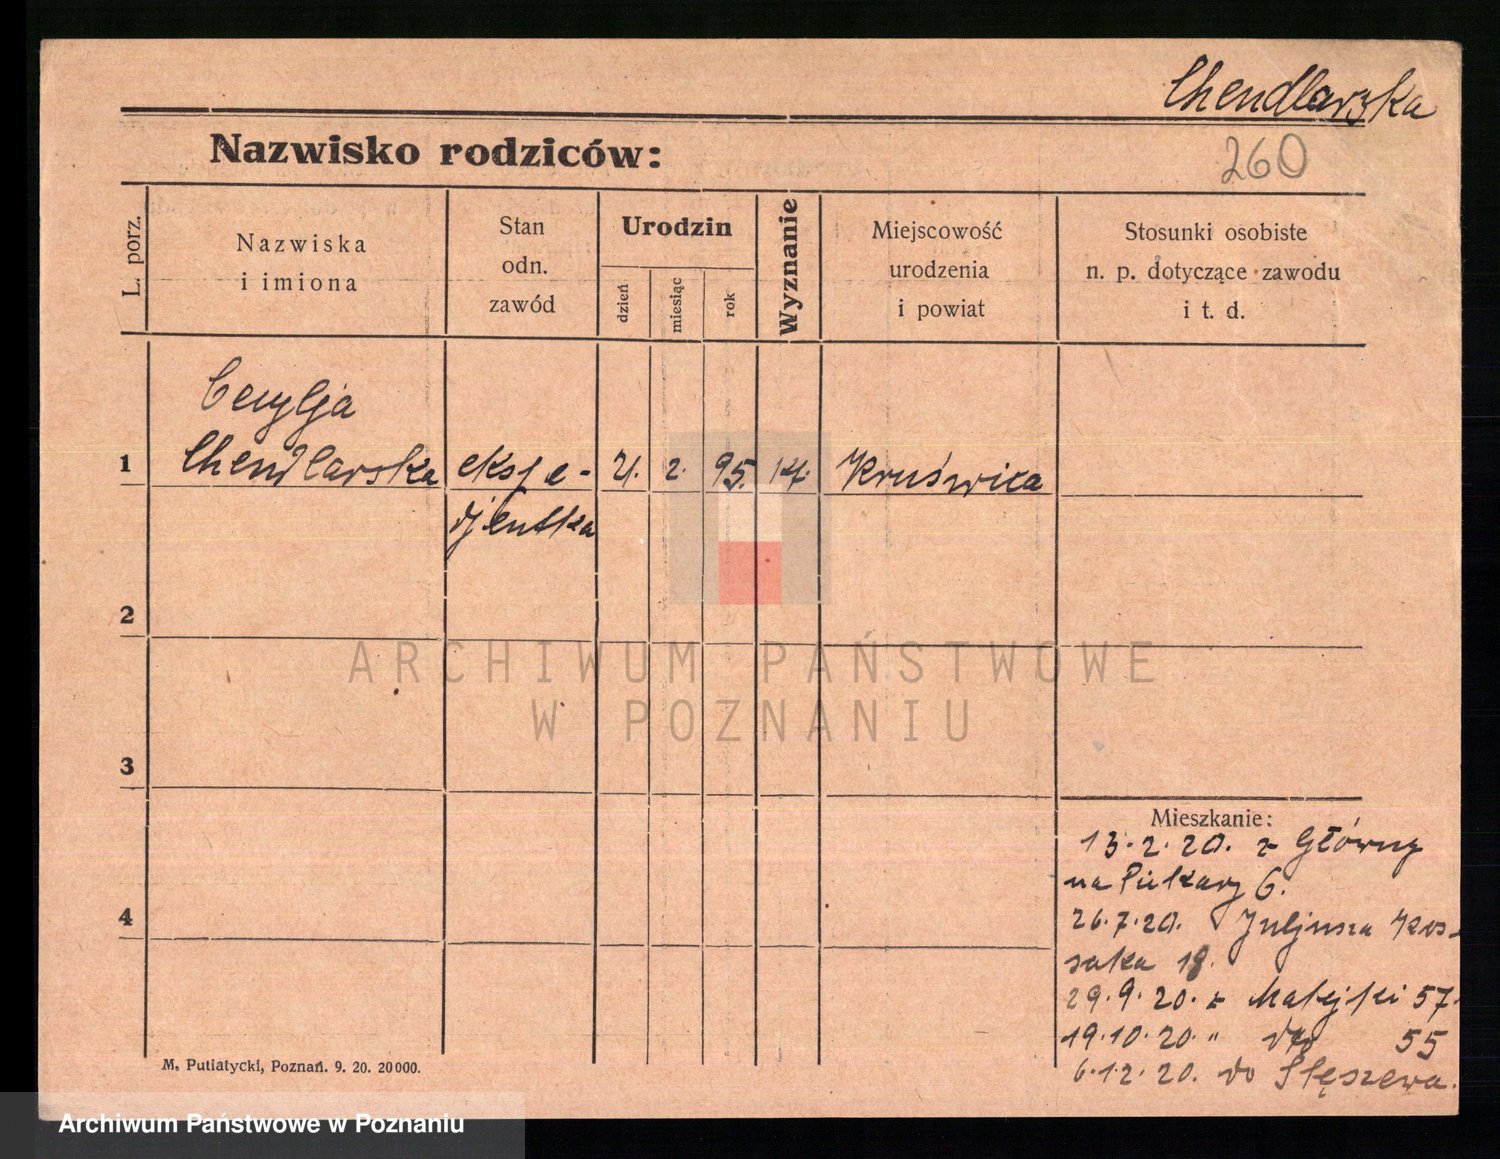 Chendlarska
260
Nazwisko rodziców:
L. porz.
Nazwiska
i imiona
Stan
odn.
zawód
Urodzin
dzień
miesiąc
rok
Wyznanie
Miejscowość
urodzenia
i powiat
Stosunki osobiste
n. p. dotyczące zawodu
i t. d.
Cecylja
1 Chendlarska ekspe- 21. 2. 95. kat. Kruświca
djentka
2
ARCHIWUM PAŃSTWOWE
W POZNANIU
3
Mieszkanie:
13.2.20. z Główny
na Piekary 6.
4
26.7.20. Juljusza Kos-
saka 18.
29.9.20. z Matejki 57.
19.10.20. " dto 55
6.12.20. do Stęszewa.
M. Putiatycki, Poznań. 9. 20. 20000.
Archiwum Państwowe w Poznaniu